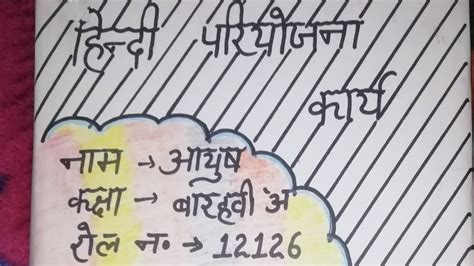 हिन्दी परियोजना
कार्य
नाम → आयुष
कक्षा → बारहवी अ
रोल न० → 12126